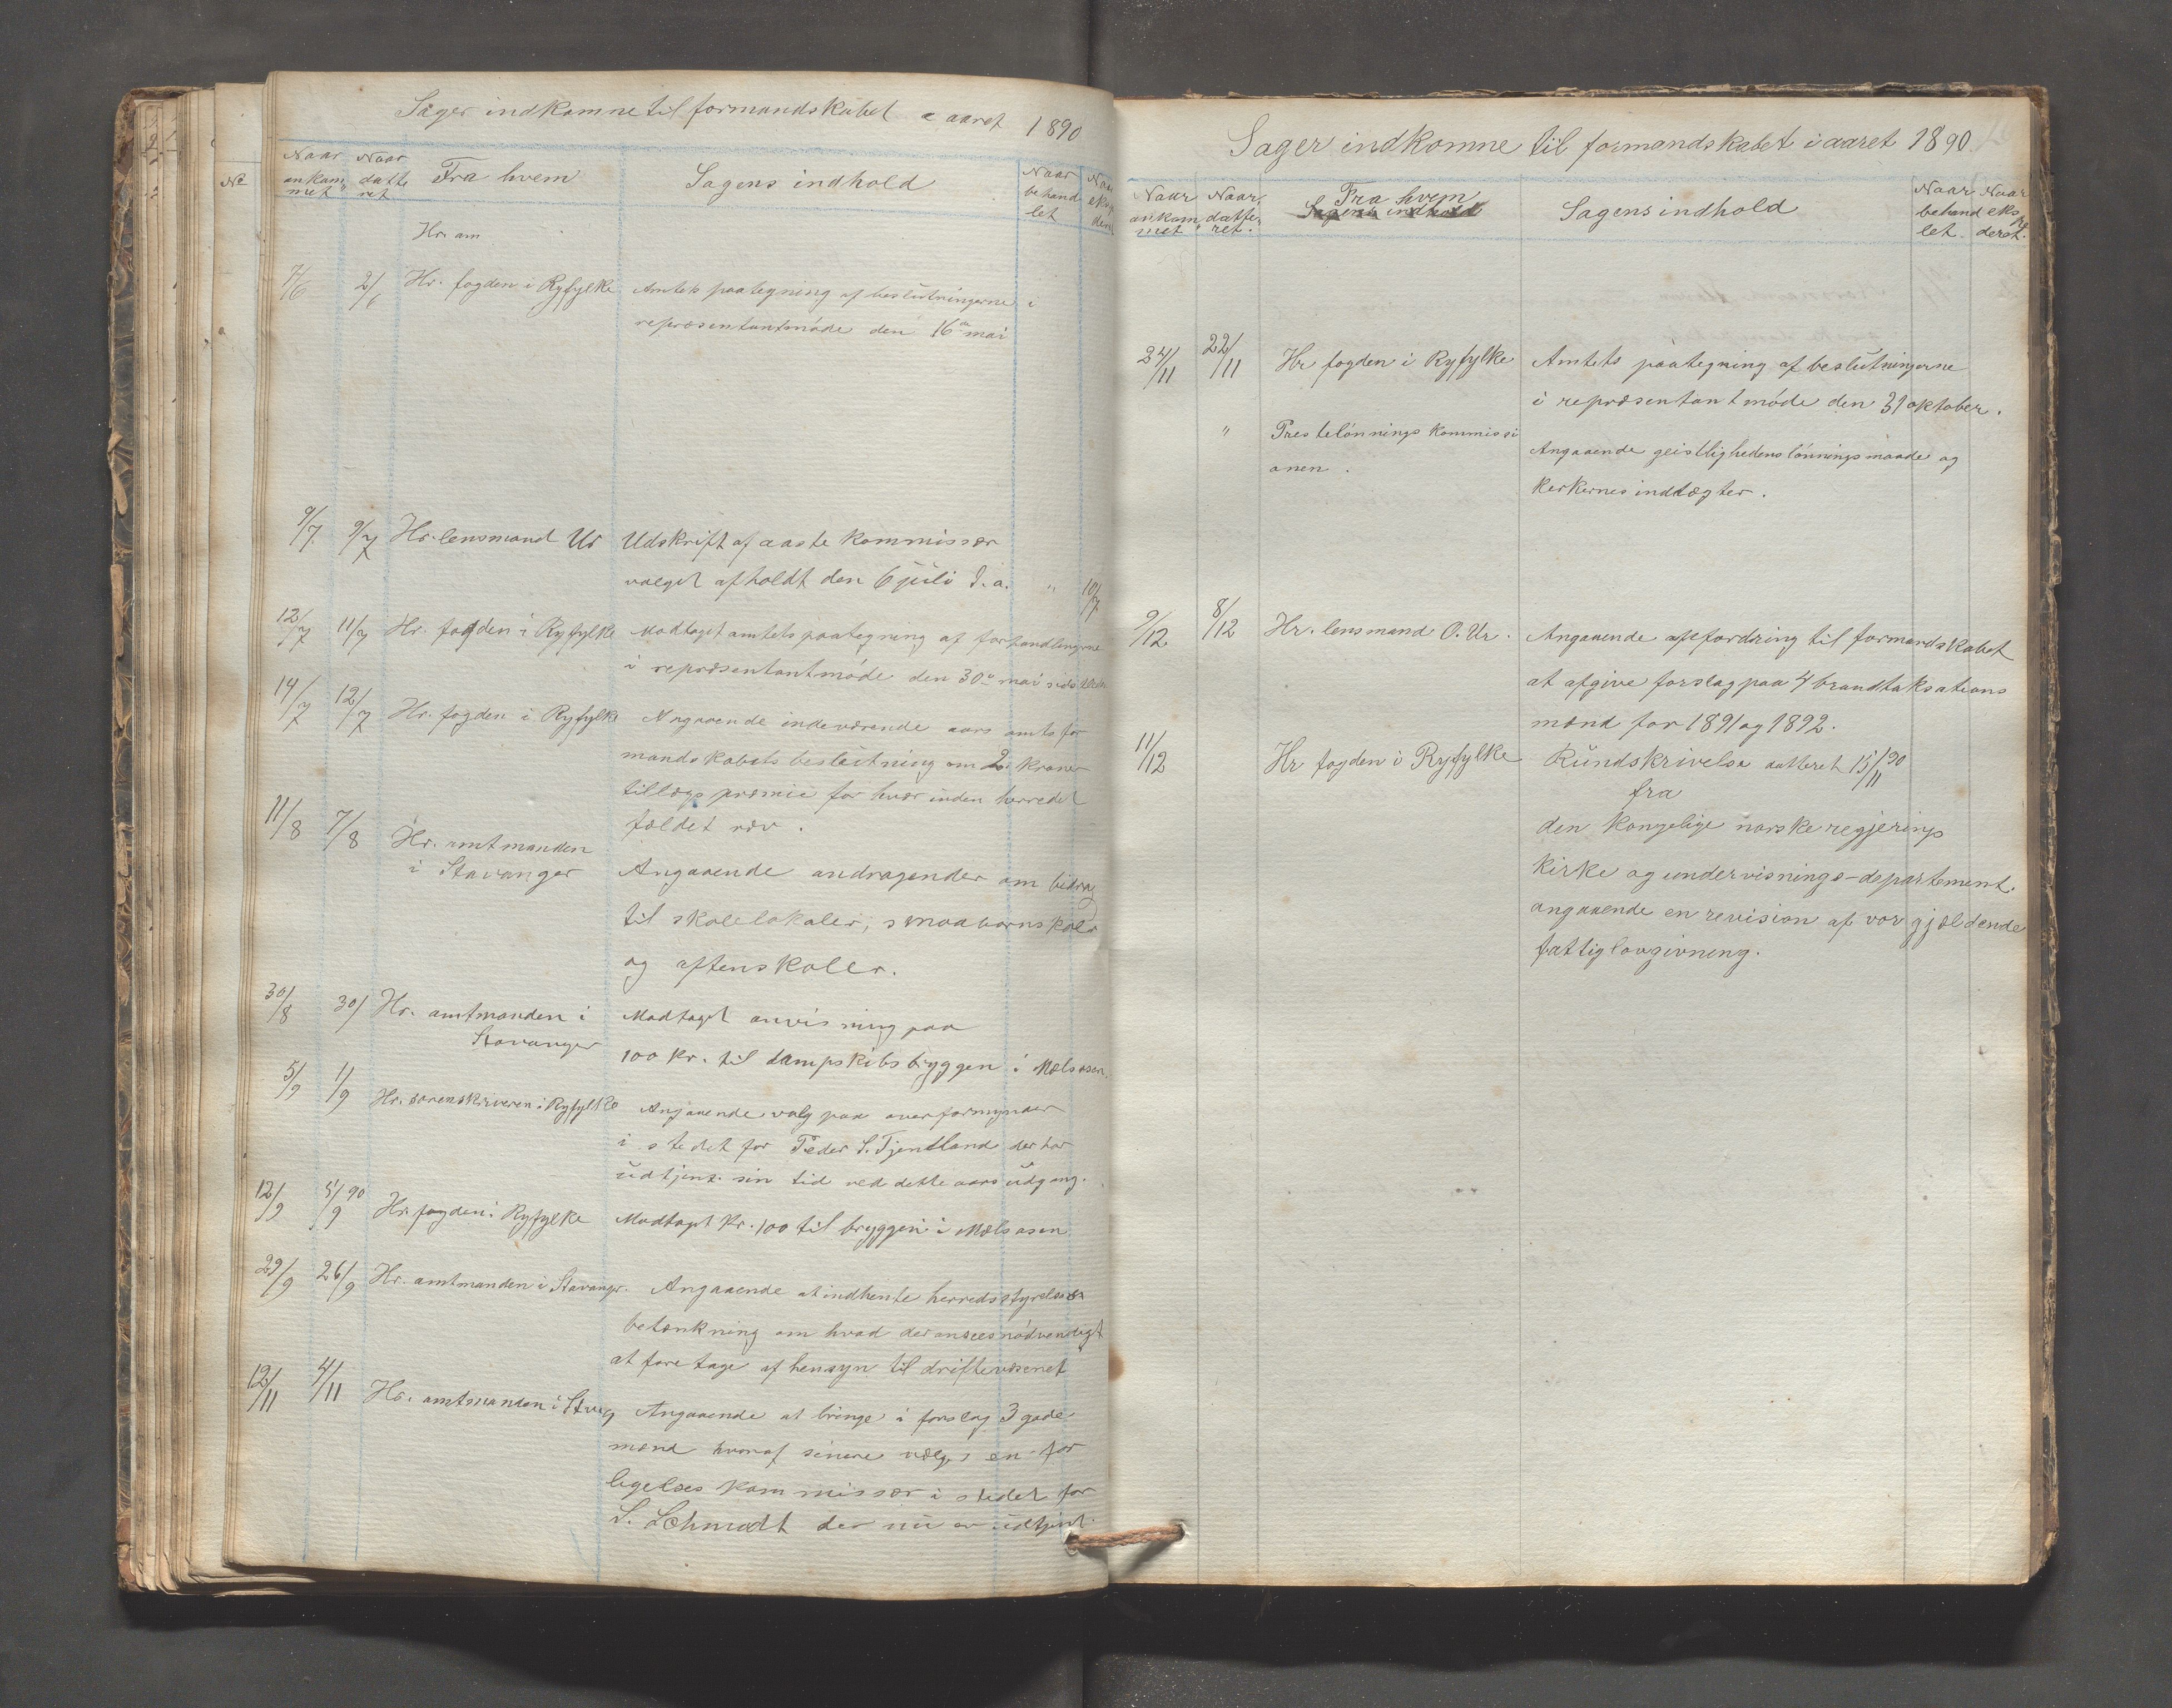 Sager indkomne til formandskabet i aaret 1890
Naar ankommet Naar datteret Fra hvem Sagens indhold Naar behandlet Naar eksp. deret
No
Hr. am
7/6 2/6 Hr. fogden i Ryfylke Amtets paategning af beslutningerne i
repræsentantmøde den 16de mai
9/7 9/7 Hr. lensmand Ur Udskrift af aaste kommissær
valget afholdt den 6 juli d. a. " 10/7
12/7 11/7 Hr. fogden i Ryfylke Modtaget amtets paategning af forhandlingerne
i repræsentantmøde den 30te mai sidstleden
14/7 12/7 Hr. fogden i Ryfylke Angaaende indeværende aars amtsfor
mandskabets beslutning om 2 kroner
tillægs præmie for hver inden herredet
fældet ræv.
11/8 7/8 Hr. amtmanden
i Stavanger Angaaende andragender om bidrag
til skolelokaler, smaabarnskoler
og aftenskoler.
30/8 30/ Hr. amtmanden i
Stavanger Modtaget anvisning paa
100 kr. til dampskibsbryggen i Mælsosen.
5/9 1/9 Hr. sorenskriveren i Ryfylke Angaaende valg paa overformynder
i stedet for Peder S. Tjentland der har
udtjent sin tid ved dette aars udgang.
12/9 5/9 90 Hr. fogden i Ryfylke Modtaget kr. 100 til bryggen i Mælsosen
29/9 26/9 Hr. amtmanden i Stavanger. Angaaende at indhente herredsstyrelsens
betænkning om hvad der ansees nødvendigt
at foretage af hensyn til driftevæsenet
12/11 4/11 Hr. amtmanden i Stvng Angaaende at bringe i forslag 3 gode
mænd hvoraf senere vælges en for
ligelses kommissær i stedet for
S. Schmidt der nu er udtjent.
Sager indkomne til formandskabet i aaret 1890
Naar ankommet Naar datteret. Fra hvem Sagens indhold Sagens indhold Naar behandlet. Naar eksp deret.
24/11 22/11 Hr fogden i Ryfylke Amtets paategning af beslutningerne
i repræsentantmøde den 31 oktober.
" Prestelønnings kommissi
onen. Angaaende geistlighedens lønningsmaade og
kerkernes indtægter.
9/12 8/12 Hr. lensmand O. Ur. Angaaende opfordring til formandskabet
at afgive forslag paa 4 brandtaksations
mænd for 1891 og 1892.
11/12 Hr fogden i Ryfylke Rundskrivelse datteret 15/11 90
fra
den kongelige norske regjerings
kirke og undervisnings-departement.
angaaende en revision af vor gjældende
fattiglovgivning.